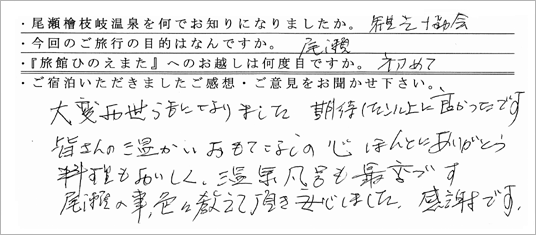 ・尾瀬檜枝岐温泉を何でお知りになりましたか。 観光協会
・今回のご旅行の目的はなんですか。 尾瀬
・『旅館ひのえまた』へのお越しは何度目ですか。 初めて
・ご宿泊いただきましたご感想・ご意見をお聞かせ下さい。
大変お世話になりました 期待した以上に良かったです
皆さんの温かいおもてなしの心 ほんとにありがとう
料理もおいしく、温泉風呂も最高です
尾瀬の事、色々教えて頂き安心しました。感謝です。